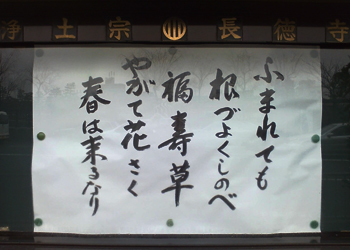 浄土宗 長徳寺
ふまれても
根づよくしのべ
福寿草
やがて花さく
春は来るなり